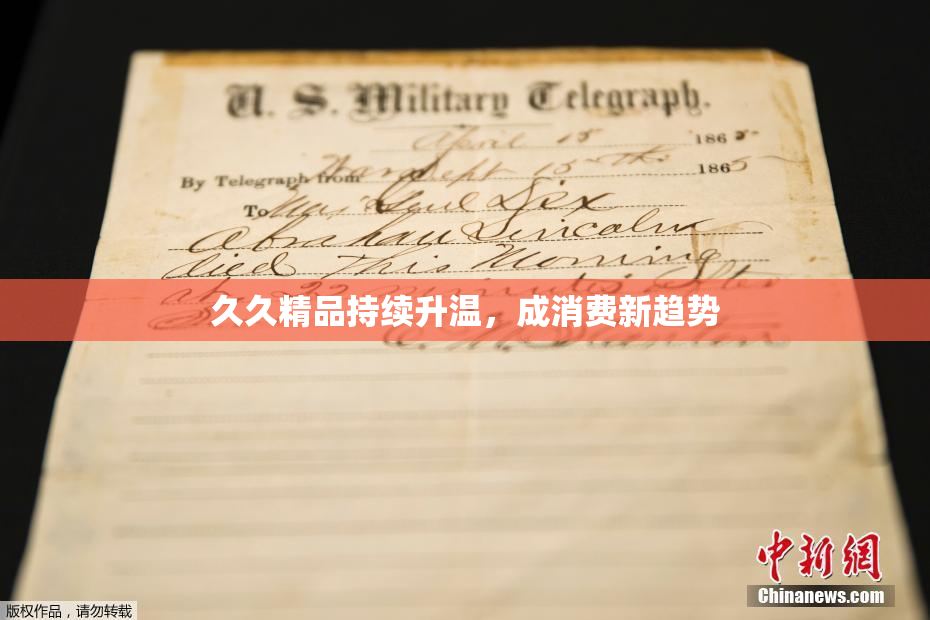 U. S. Military Telegraph.
April 15 1865
By Telegraph from War Dept 15th 1865
To Maj Genl Dix
Abraham Lincoln
died This Morning
at 22 minutes after
久久精品持续升温，成消费新趋势
中新网
Chinanews.com
版权作品，请勿转载